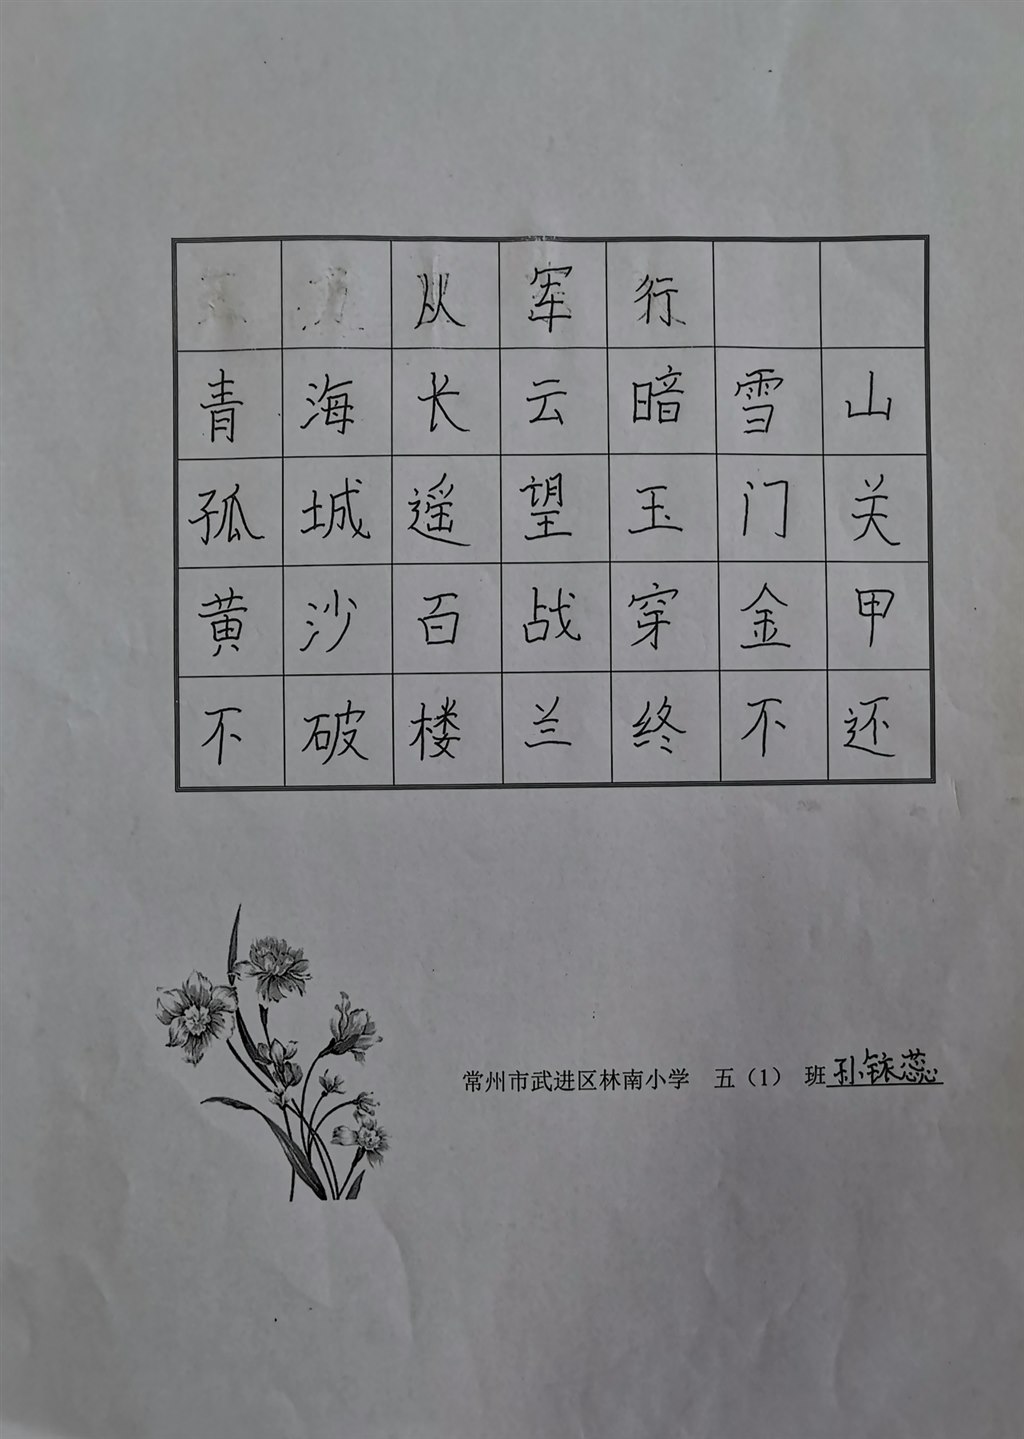 从军行
青海长云暗雪山
孤城遥望玉门关
黄沙百战穿金甲
不破楼兰终不还
常州市武进区林南小学 五（1） 班 孙铱蕊